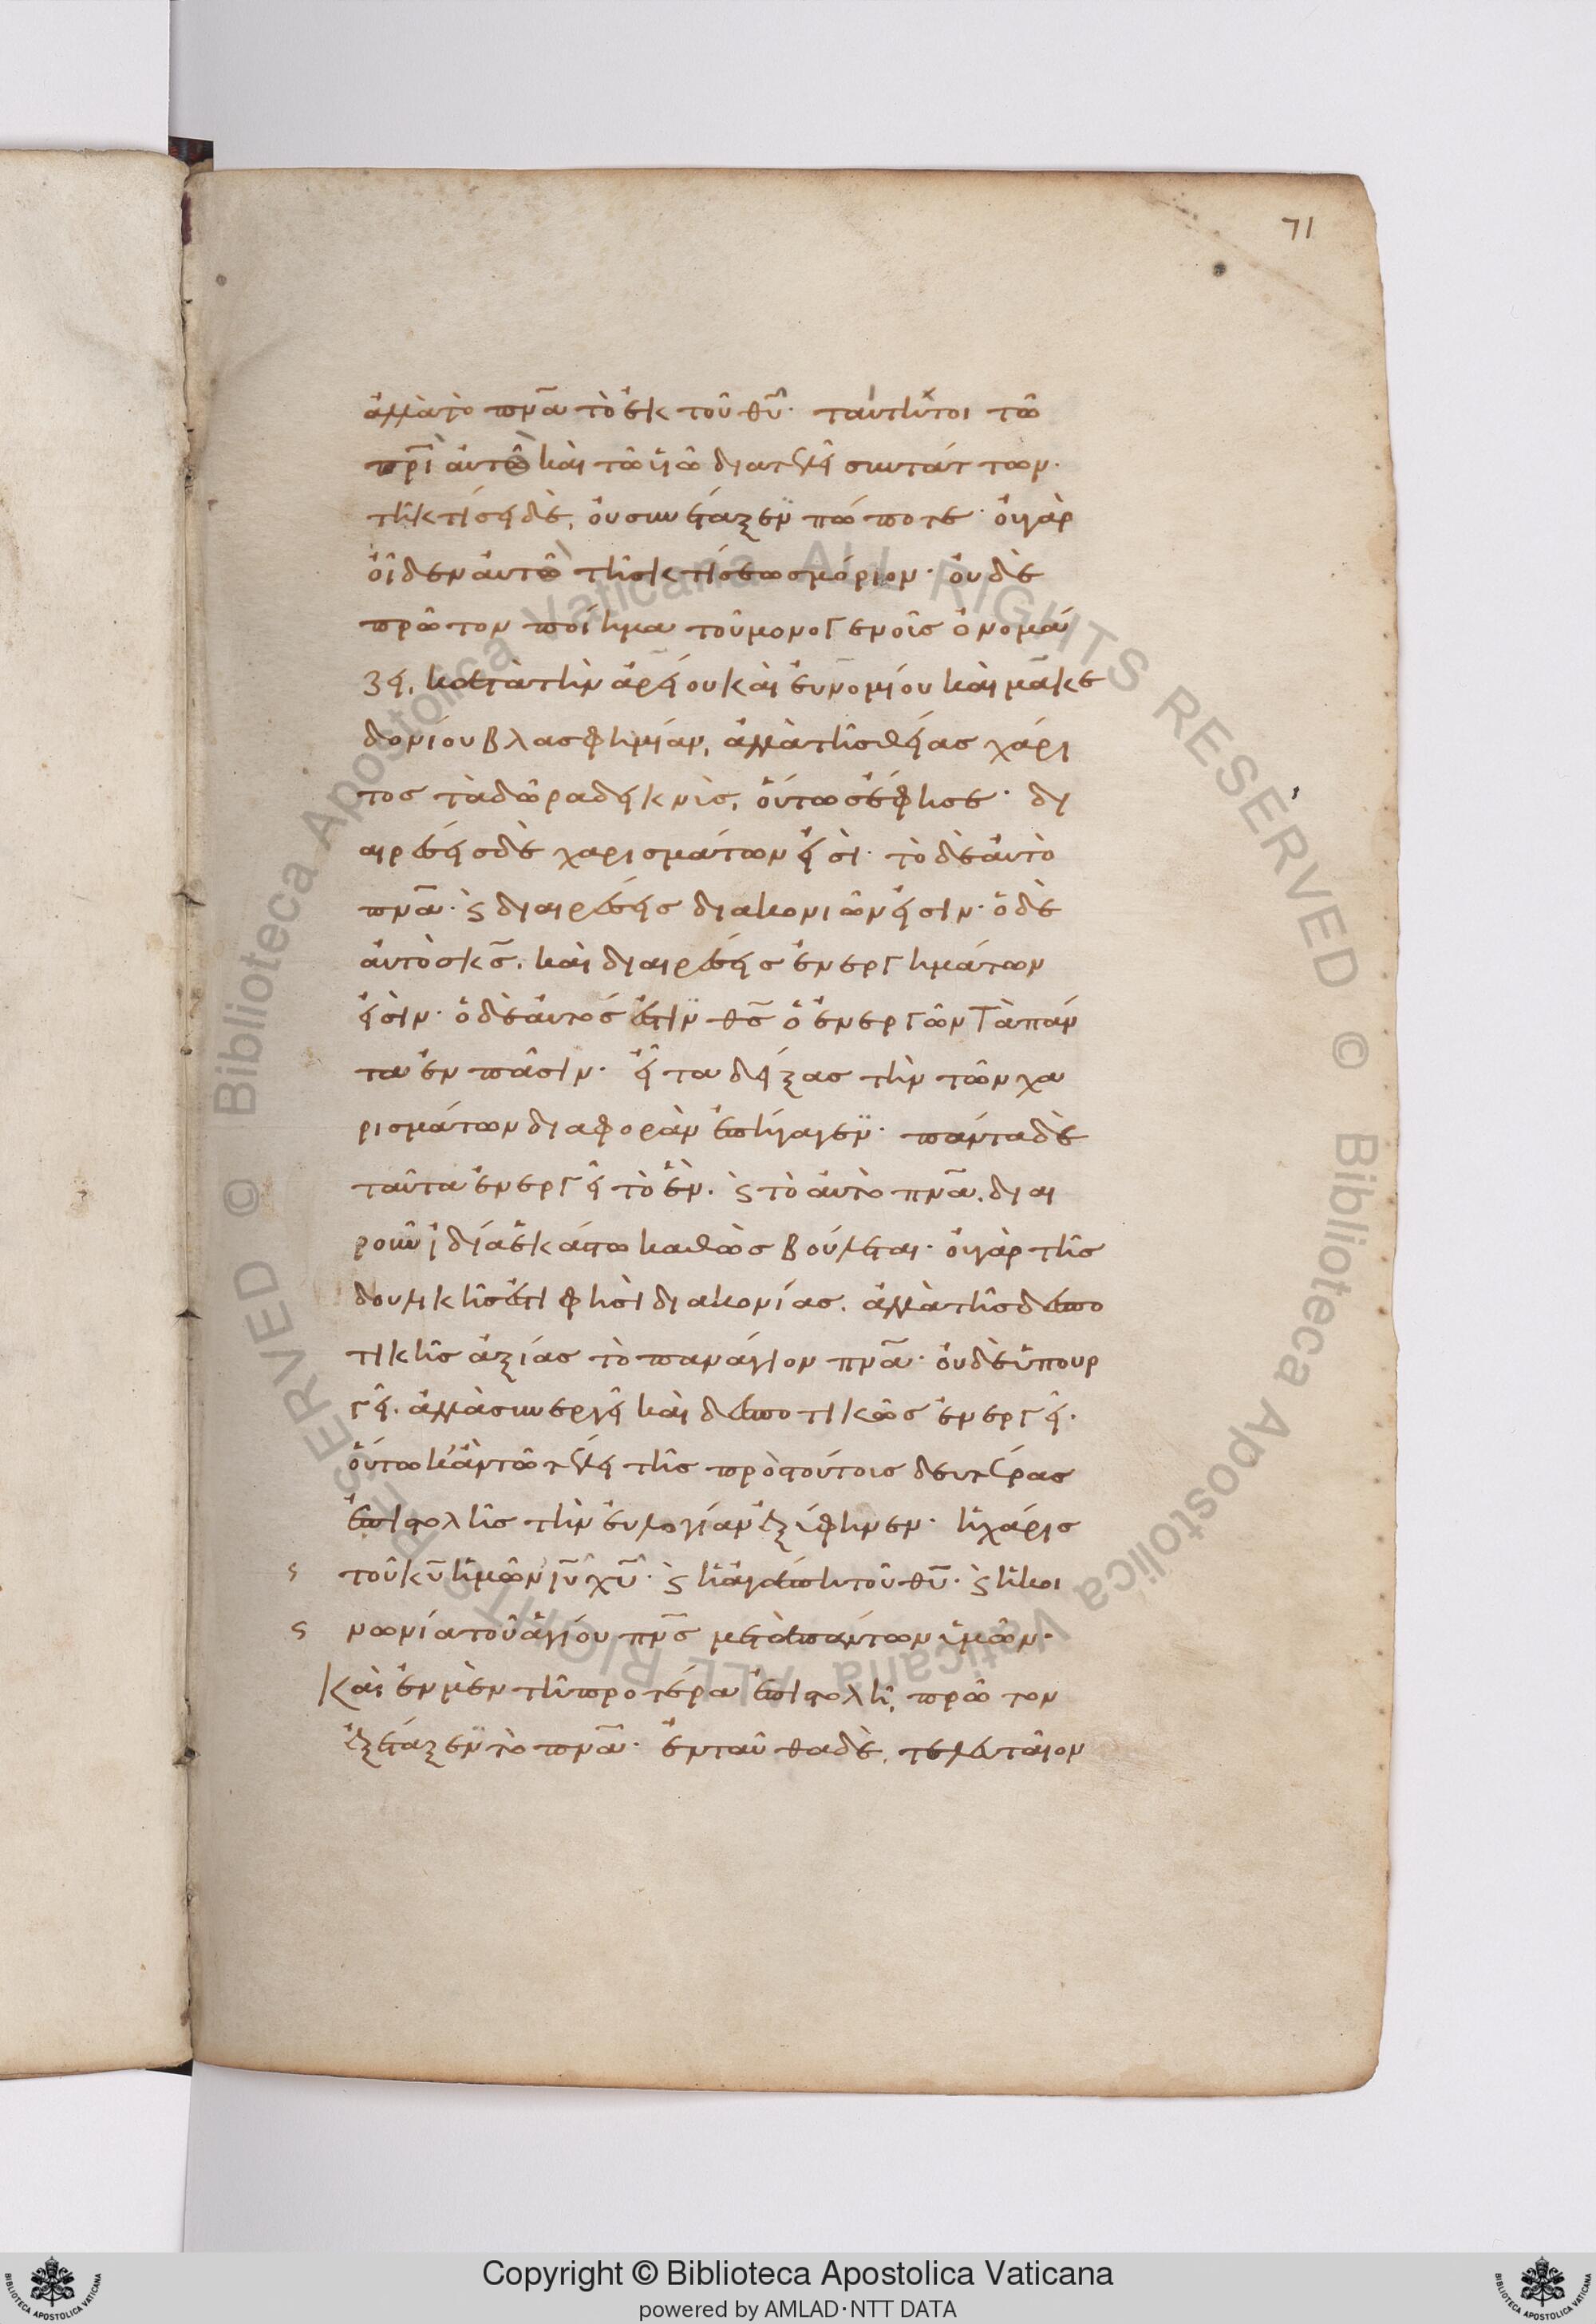 71
ἀλλὰ τὸ πνᾶ τὸ ἐκ τοῦ θυ̅· ταύτηντοι τῶ
πρι̅ ἀυτὸ καὶ τῶ υἱῶ διατελεῖ συντάττων·
τῆ κτίσει δὲ, οὐ συνέταξεν πώποτε· οὐ γὰρ
οἶδεν ἀυτὸ τῆς κτίσεως μόριον· οὐδὲ
πρῶτον ποίημα τοῦ μονογενοῦς ὀνομά
ζει, κατὰ τὴν ἀρείου καὶ ἐυνομίου καὶ μακε
δονίου βλασφημίαν, ἀλλὰ τῆς θείας χάρι
τος τὰ δῶρα δεικνὺς, οὕτως ἔφησε· δι
αιρέσεις δὲ χαρισμάτων εἰσὶ· τὸ δὲ ἀυτὸ
πνᾶ· ϛ διαιρέσεις διακονιῶν εἰσιν· ὁ δὲ
ἀυτὸς κς̅. καὶ διαιρέσεις ἐνεργημάτων
εἰσὶν· ὁ δὲ ἀυτός ἐστιν θς̅ ὁ ἐνεργῶν τὰ πάν
τα ἐν πᾶσιν· εἶτα δείξας τὴν τῶν χα
ρισμάτων διαφορὰν ἐπήγαγεν· πάντα δὲ
ταῦτα ἐνεργεῖ τὸ ἓν. ϛ τὸ ἀυτὸ πνᾶ. διαι
ροῦν ἰδία ἑκάστω καθὼς βούλεται· οὐ γὰρ τῆς
δουλικῆς ἐστὶ φησὶ διακονίας. ἀλλὰ τῆς δεσπο
τικῆς ἀξίας τὸ πανάγιον πνᾶ· οὐδὲ ὑπουρ
γεῖ. ἀλλὰ συνεργεῖ καὶ δεσποτικῶς ἐνεργεῖ.
οὕτω κἀν τῶ τέλει τῆς πρὸς τούτοις δευτέρας
ἐπιστολῆς τὴν ἐυλογίαν ἐξύφηνεν· ἡ χάρις
τοῦ κυ̅ ἡμῶν ιυ̅ χυ̅· ϛ ἡ ἀγάπη τοῦ θυ̅· ϛ ἡ κοι
νωνία τοῦ ἁγίου πνς̅ μετὰ πάντων ὑμῶν·
Καὶ ἐν μὲν τῆ προτέρα ἐπιστολῆ, πρῶτον
ἐξέταξεν τὸ πνᾶ· ἐνταῦθα δὲ, τελευταῖον
Copyright © Biblioteca Apostolica Vaticana
powered by AMLAD·NTT DATA